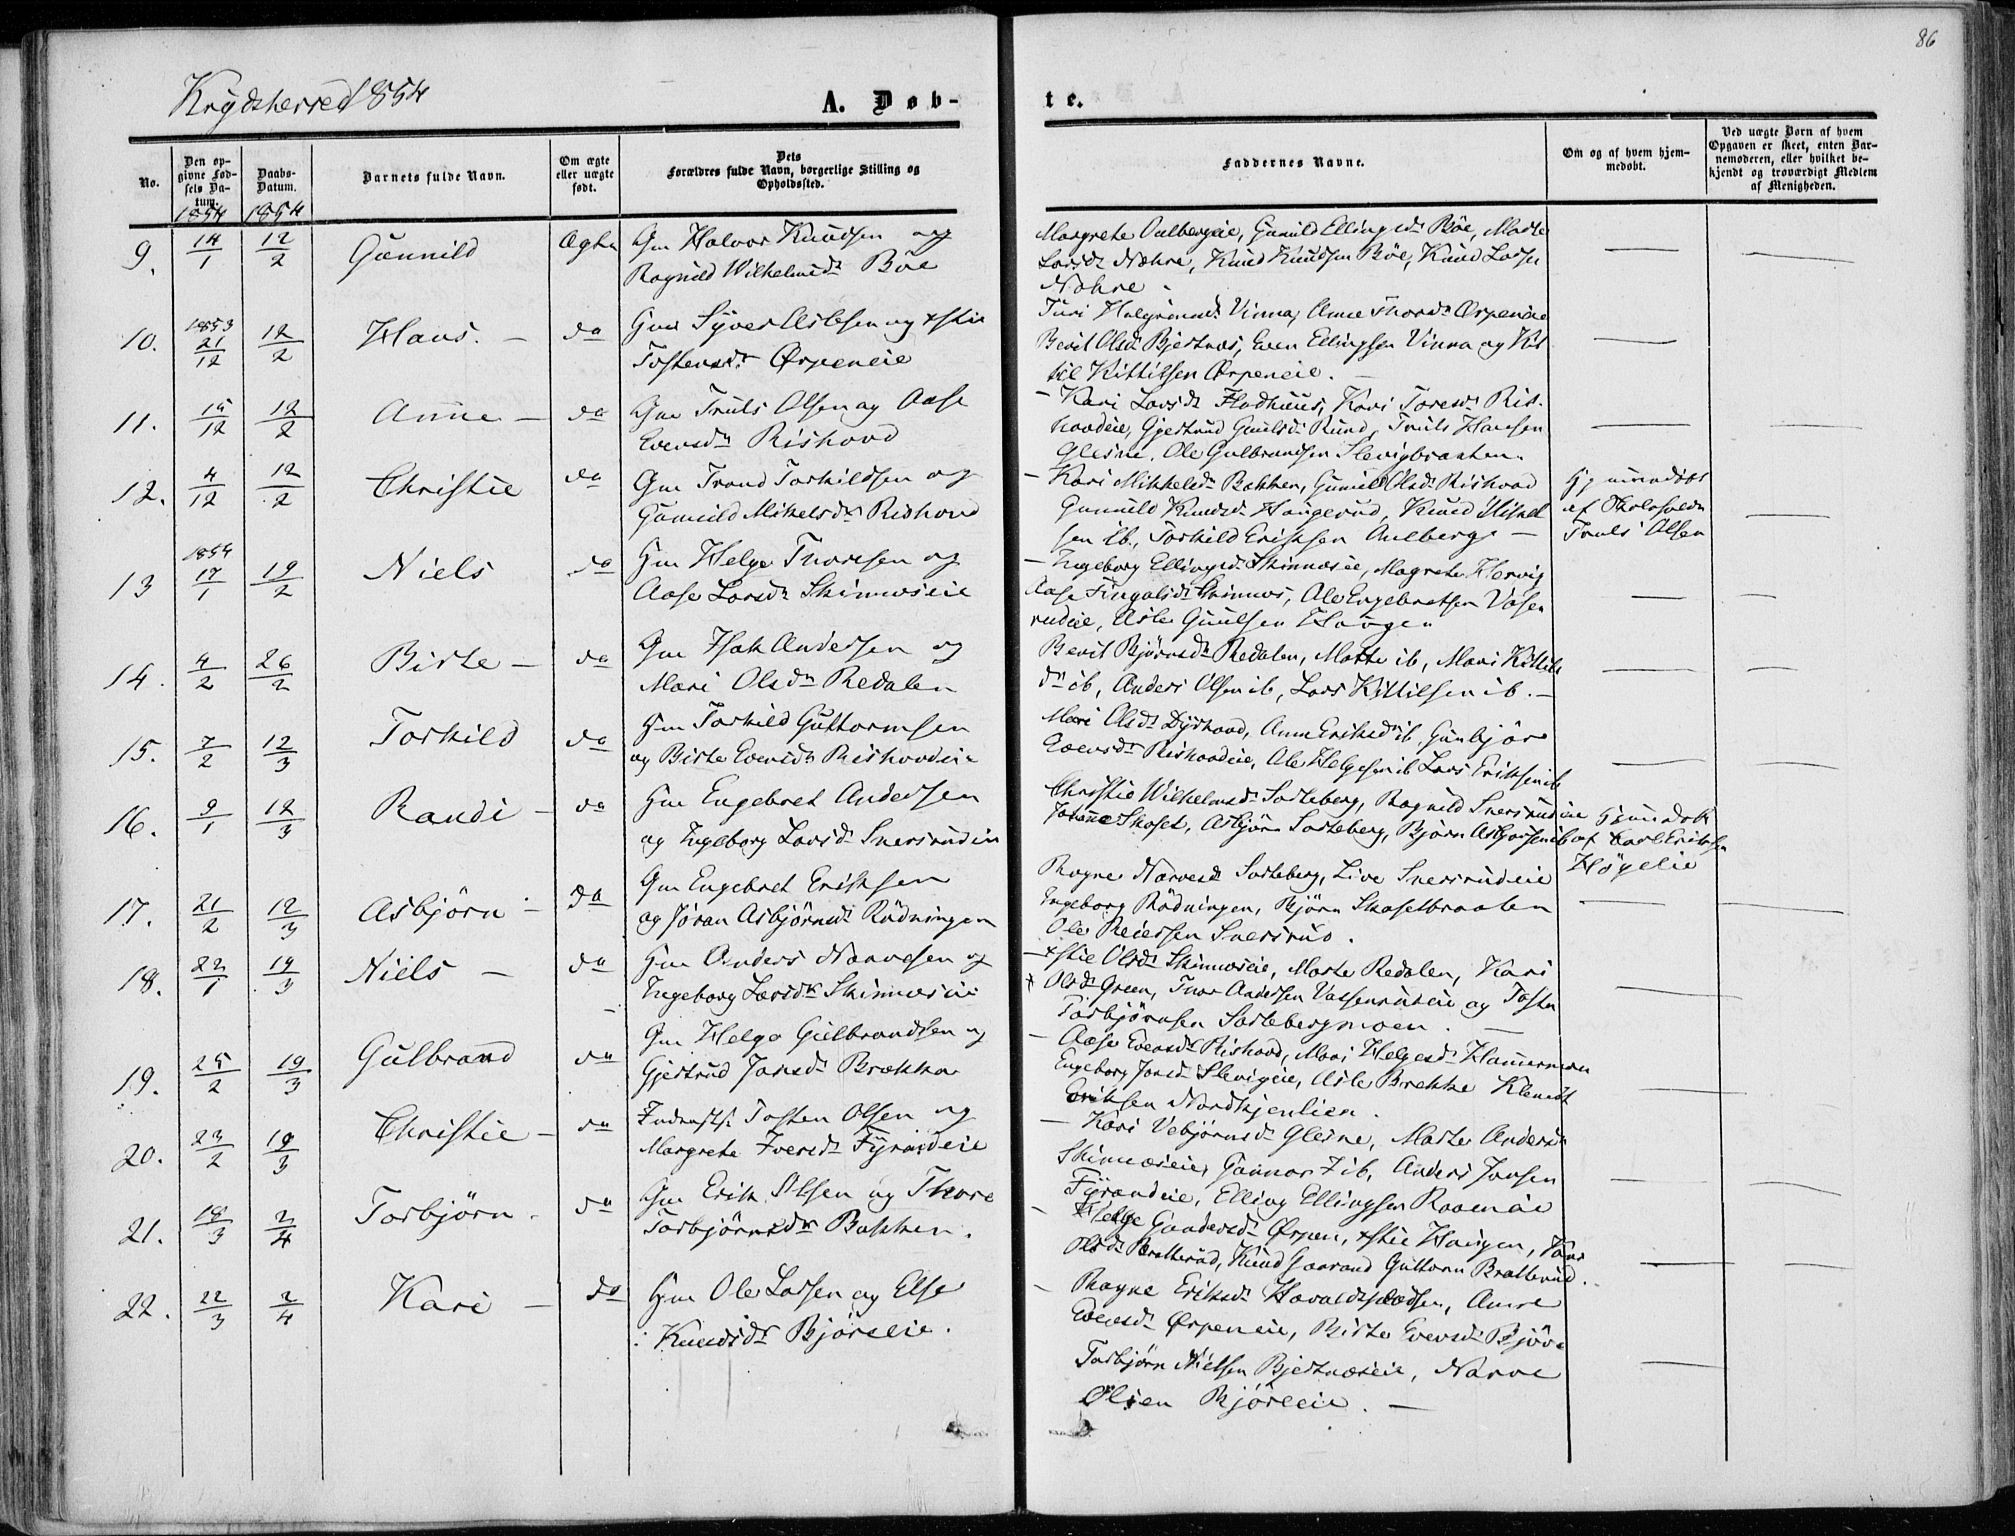 86
Krydsherred 1854
A. Døb-
te.
No.
Den op-
givne Fød-
sels Da-
tum.
1854
Daabs-
Datum.
1854
Barnets fulde Navn.
Om ægte
eller uægte
født.
Dets
Forældres fulde Navn, borgerlige Stilling og
Opholdssted.
Faddernes Navne.
Om og af hvem hjem-
medøbt.
Ved uægte Børn af hvem
Opgaven er skeet, enten Bar-
nemoderen, eller hvilket be-
kjendt og troværdigt Medlem
af Menigheden.
9. 14/1 12/2 Gunnild Ægte Gm Halvor Knudsen og
Ragnild Wilhelmsdr Bøe
Margrete Aulbergeie, Gunild Ellingsdr Bøe, Marte
Larsdr Næhre, Knud Knudsen Bøe, Knud Larsen
Næhre.
10. 1853 21/12 12/2 Hans. - do Gm Syver Aslesen og Xstie
Tostensdr Ørpeneie
Turi Halgrimsdr Vinna, Anne Thordr Ørpeneie
Berit Olsdr Bjertnæs, Even Ellingsen Vinna og Kit
til Kittilsen Ørpeneie. -
11. 15/12 12/2 Anne - do Gm Truls Olsen og Aase
Evensdr Rishovd
- Kari Larsdr Flodhuus, Kari Toresdr Ris-
hovdeie, Gjertrud Gulsdr Rund, Truls Hansen
Glesne, Ole Gulbrandsen Slevigbraaten.
12. 4/12 12/2 Christie do Gm Trond Torkildsen og
Gunnild Mikelsdr Rishovd
- Kari Mikkelsdr Bakken, Gunild Olsdr Rishovd
Gunnild Knudsdr Haugerud, Knud Mikkel
sen ib., Torkild Eriksen Aulberg. -
Hjemmedøbt
af Skoleholdr
Truls Olsen
13 1854 17/1 19/2 Niels do Gm Helge Thoresen og
Aase Larsdr Skinnæseie
- Ingeborg Ellingsdr Skinnæseie, Magrete Hervig
Aase Fingalsdr Skinnes, Ole Engebretsen Vasen
rudeie, Asle Gulsen Haugen
14. 4/2 26/2 Birte - do Gm Isak Andersen og
Mari Olsdr Redalen
Berit Bjørnsdr Redalen, Marte ib, Mari Kittils
dr ib, Anders Olsen ib, Lars Kittilsen ib. -
15. 7/2 12/3 Torkild do Gm Torkild Guttormsen
og Birte Evensdr Rishovdeie
Mari Olsdr Dyrhovd, Anne Eriksdr ib, Gunbjør
Evensdr Rishovdeie, Ole Helgesen ib Lars Eriksen ib
16. 9/1 12/3 Randi - do Gm Engebret Andersen
og Ingeborg Larsdr Snersrudeie
Christie Wilhelmsdr Sorteberg, Ragnild Snersrudeie
Johanne Skoset, Asbjørn Sorteberg, Bjørn Asbjørnsen ib
Hjemmedøbt
af Carl Eriksen
Høgelie
17. 21/2 12/3 Asbjørn - do Gm Engebret Eriksen
og Jøran Asbjørnsdr Rudningen
Ragne Narvesdr Sorteberg, Live Snersrudeie
Ingeborg Rudningen, Bjørn Skosetbraaten
Ole Reiersen Snersrud.
18. 22/1 19/3 Niels - do Gm Anders Narvesen og
Ingeborg Larsdr Skinnæseie
- Xstie Olsdr Skinnæseie, Marte Redalen, Kari
Olsdr Green, Tror Andersen Vassenrudeie og Tosten
Torbjørnsen Sortebergmoen. -
19. 25/2 19/3 Gulbrand do Gm Helge Gulbrandsen og
Gjertrud Jonsdr Brækka
- Aase Evensdr Rishovd, Mari Helgesdr Hammeren
Engeborg Jonsdr Slevigeie, Asle Brekke Klemet
Eriksen Nordhjenlien.
20. 23/2 19/3 Christie - do Inderst: Tosten Olsen og
Margrete Iversdr Fyrandeie
- Kari Vebjørnsdr Glesne, Marte Andersdr
Skinnæseie, Gunnar ib, Anders Jonsen
Fyrandeie, Elling Ellingsen Roaeneie
21. 18/3 2/4 Torbjørn. do Gm Erik Olsen og Thore
Torbjørnsdr Bakken.
- Helge Gundersdr Ørpen, Xstie Haugen, Kari
Olsdr Bratterud, Knud Gaarand Guttorm Bratterud.
22. 22/3 2/4 Kari - do Gm Ole Larsen og Else
Knudsdr Bjøreeie.
- Ragne Eriksdr Haraldspladsen, Anne
Evensdr Ørpeneie, Birte Evensdr Bjøre
Torbjørn Nielsen Bjertnæseie, Narve
Olsen Bjøreeie. -